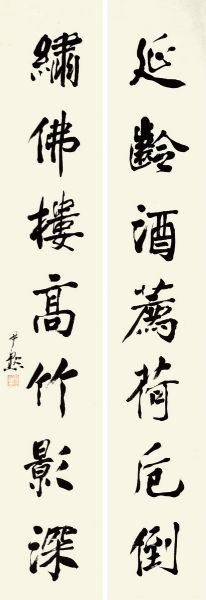 延齡酒薦荷卮倒
繡佛樓高竹影深
尹默